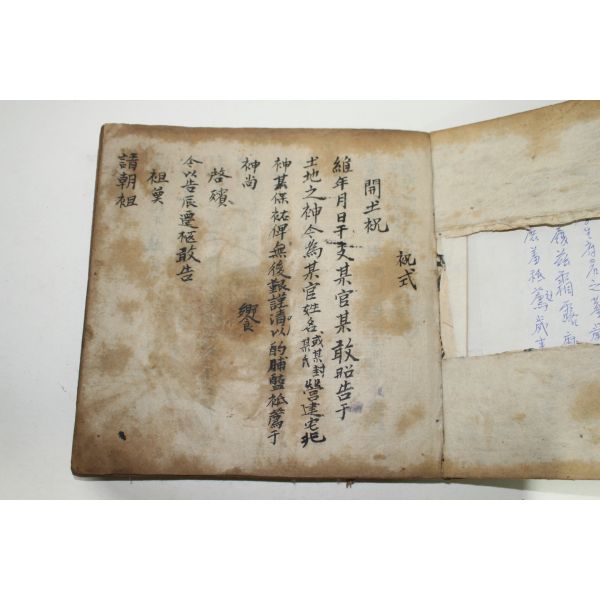 祝式
開土祝
維年月日干支某官某敢昭告于
土地之神今為某官姓名或某封某氏營建宅兆
神其保祐俾無後艱謹以酌脯醢祗薦于
神尚
饗
啓殯
今以吉辰遷柩敢告
祖奠
請朝祖
茲霜露